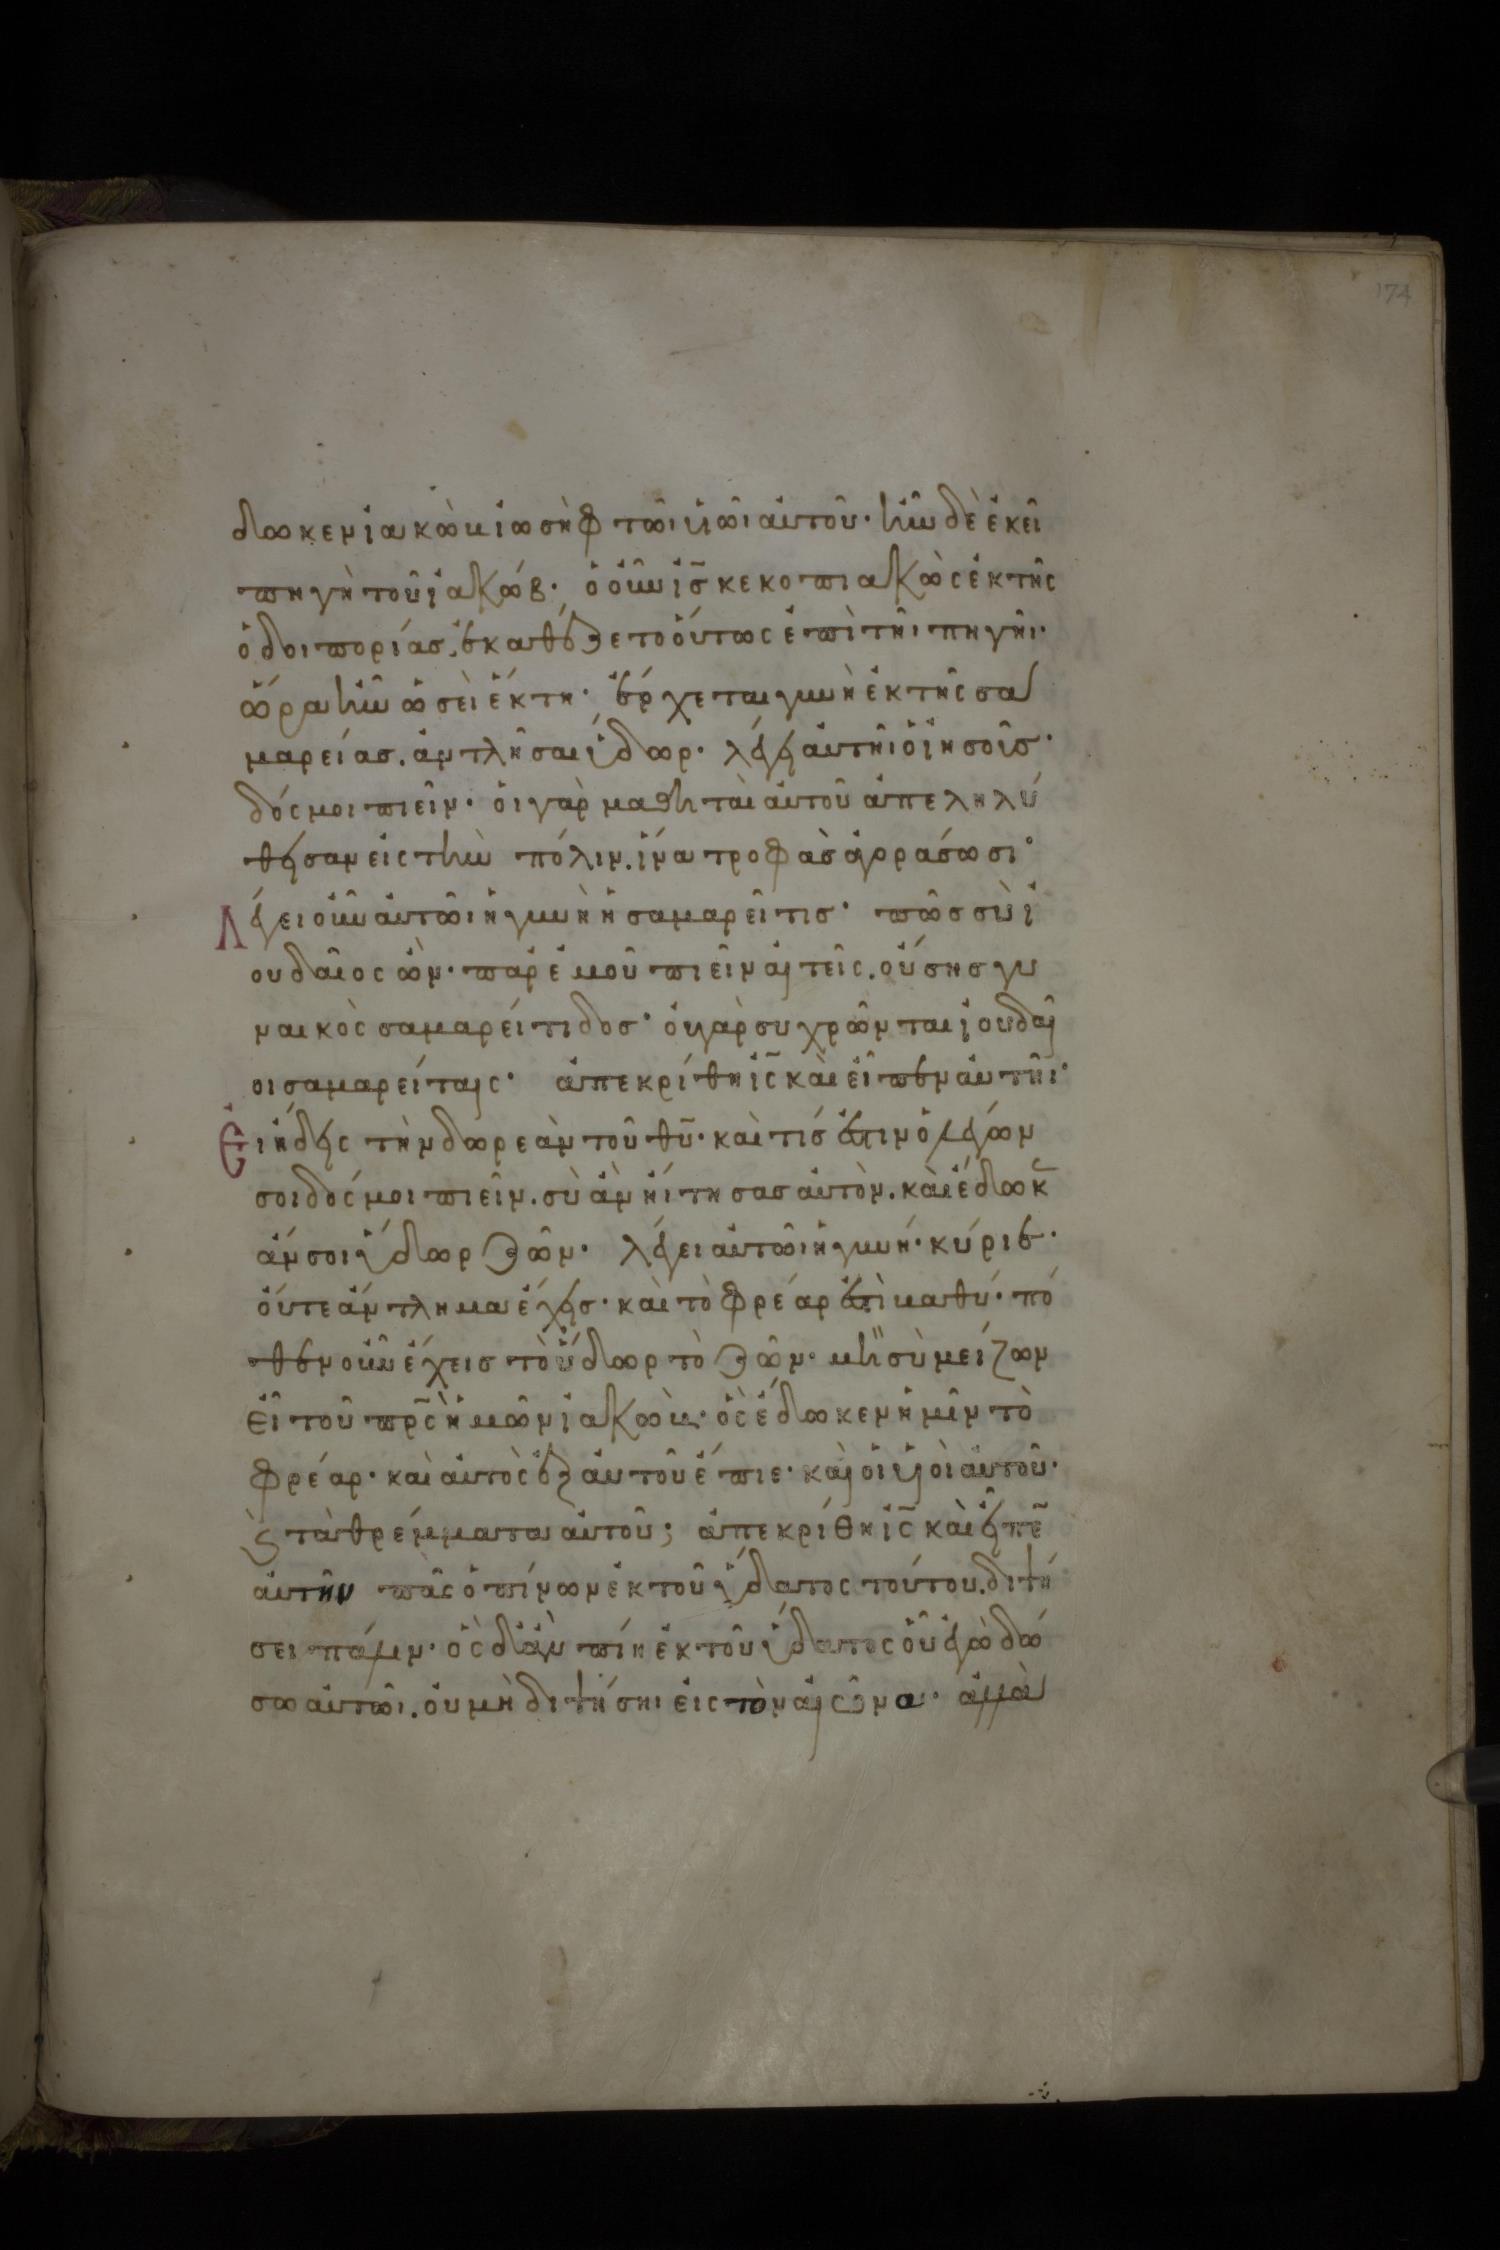 174
δωκεν ἰακὼβ ἰωσὴφ τῶι υἱῶι αὐτοῦ· ἦν δὲ ἐκεῖ
πηγὴ τοῦ ἰακώβ· ὁ οὖν ἰς̄ κεκοπιακὼς ἐκ τῆς
ὁδοιπορίας. ἐκαθέζετο οὕτως ἐπὶ τῆι πηγῆι·
ὥρα ἦν ὡσεὶ ἕκτη· ἔρχεται γυνὴ ἐκ τῆς σα
μαρείας. ἀντλῆσαι ὕδωρ· λέγει αὐτῆι ὁ ἰησοῖς·
δός μοι πιεῖν· οἱ γὰρ μαθηταὶ αὐτοῦ ἀπεληλύ
θεισαν εἰς τὴν πόλιν. ἵνα τροφὰς ἀγοράσωσι·
Λέγει οὖν αὐτῶι ἡ γυνὴ ἡ σαμαρεῖτις· πῶς σὺ ἰ
ουδαῖος ὢν· παρ' ἐμοῦ πιεῖν αἰτεῖς. οὔσης γυ
ναικὸς σαμαρείτιδος· οὐ γὰρ συγχρῶνται ἰουδαῖ
οι σαμαρείταις· ἀπεκρίθη ἰς̄ καὶ εἶπεν αὐτῆι·
Εἰ ἤδεις τὴν δωρεὰν τοῦ θῡ· καὶ τίς ἐστιν ὁ λέγων
σοι δός μοι πιεῖν. σὺ ἂν ἤιτησας αὐτὸν. καὶ ἔδωκ
ἄν σοι ὕδωρ ζῶν· λέγει αὐτῶι ἡ γυνή· κύριε·
οὔτε ἄντλημα ἔχεις· καὶ τὸ φρέαρ ἐστὶ βαθύ· πό
θεν οὖν ἔχεις τὸ ὕδωρ τὸ ζῶν· μὴ σὺ μείζων
εἶ τοῦ πρς̄ ἡμῶν ἰακὼβ· ὃς ἔδωκεν ἡμῖν τὸ
φρέαρ· καὶ αὐτὸς ἐξ αὐτοῦ ἔπιε· καὶ οἱ υἱοὶ αὐτοῦ·
ϗ τὰ θρέμματα αὐτοῦ; ἀπεκρίθη ἰς̄ καὶ εἶπε̄
αὐτὴν πᾶς ὁ πίνων ἐκ τοῦ ὕδατος τούτου. διψή
σει πάλιν· ὃς δἂν πίη ἐκ τοῦ ὕδατος οὗ ἐγὼ δώ
σω αὐτῶι. οὐ μὴ διψήσηι εἰς τὸν αἰῶνα· ἀλλὰ